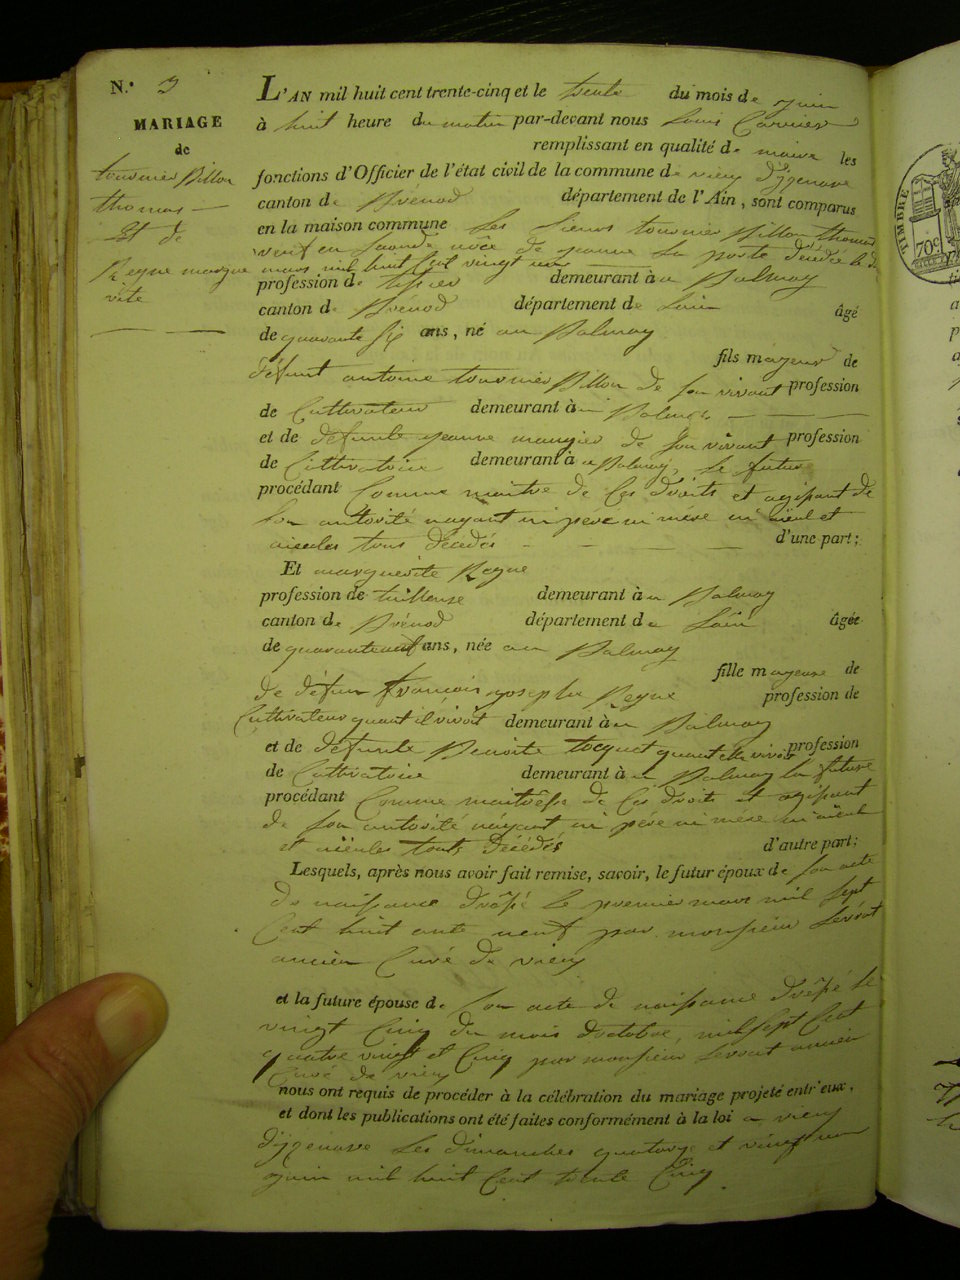 N.º 3
MARIAGE
de
tournier Billon
thomas
Et de
Reyne margue
rite
L'AN mil huit cent trente-cinq et le trente du mois de juin
à huit heure du matin par-devant nous Louis Carrier
remplissant en qualité de maire les
fonctions d'Officier de l'état civil de la commune de vieu d'izenave
canton de Brénod département de l'Ain, sont comparus
en la maison commune Les sieurs tournier Billon thomas
veuf en seconde noce de jeanne La poste décédée le
mars mil huit Cent vingt
profession de tissier demeurant à Balmay
canton de Brénod département de Lain âgé
de quarante six ans, né au Balmay
fils mageur de
défunt antoine tournier Billon de son vivant profession
de Cultivateur demeurant à Balmay
et de défunte jeanne mangier de son vivant profession
de Cultivatrice demeurant à Balmay, Le futur
procédant Comme maitre de Ces droits et agissant de
son autorité nayant ni pere ni mére ni aieul et
aieules tous décédés d'une part;
Et marguerite Reyne
profession de tailleuse demeurant à Balmay
canton de Brénod département de Lain âgée
de quaranteneuf ans, née au Balmay
fille mageure de
de défun francois joseph Reyne profession de
Cultivateur quant il vivoit demeurant à Balmay
et de défunte Benoite tocquet quant elle vivoit profession
de Cultivatrice demeurant à Balmay la future
procédant Comme maitresse de Ces droits et agissant
de son autorité náyant ni pére ni mére ni aieul
et aieules touts décédés d'autre part;
Lesquels, après nous avoir fait remise, savoir, le futur époux de son acte
de naissance dressé le premier mars mil sept
Cent huit ante neuf par monsieur Levrat
ancien Curé de vieu
et la future épouse de son acte de naissance dressé le
vingt Cinq du mois doctobre, mil sept Cent
quatre vingt et Cinq par monsieur Levrat ancien
Curé de vieu
nous ont requis de procéder à la célébration du mariage projeté entr'eux,
et dont les publications ont été faites conformément à la loi a vieu
d'izenave Les dimanches quatorze et vingt un
juin mil huit Cent trente Cinq
TIMBRE
70c